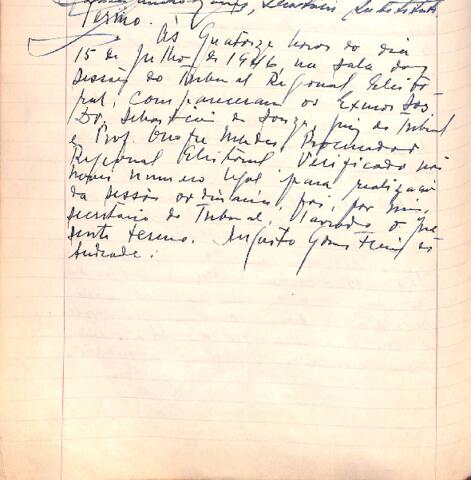 Secretario Substituto
Termo. Às Quatorze horas do dia
15 de Julho de 1946, na sala das
sessões do Tribunal Regional Eleito-
ral, compareceram os Exmos Srs
Dr. Sebastião de Souza, juiz do Tribunal
e Prof. Mendes Procurador
Regional Eleitoral. Verificado não
numero legal para realização
da sessão ordinaria, foi, por mim,
secretario do Tribunal, lavrado o pre-
sente termo. Augusto Gomes
Andrade.